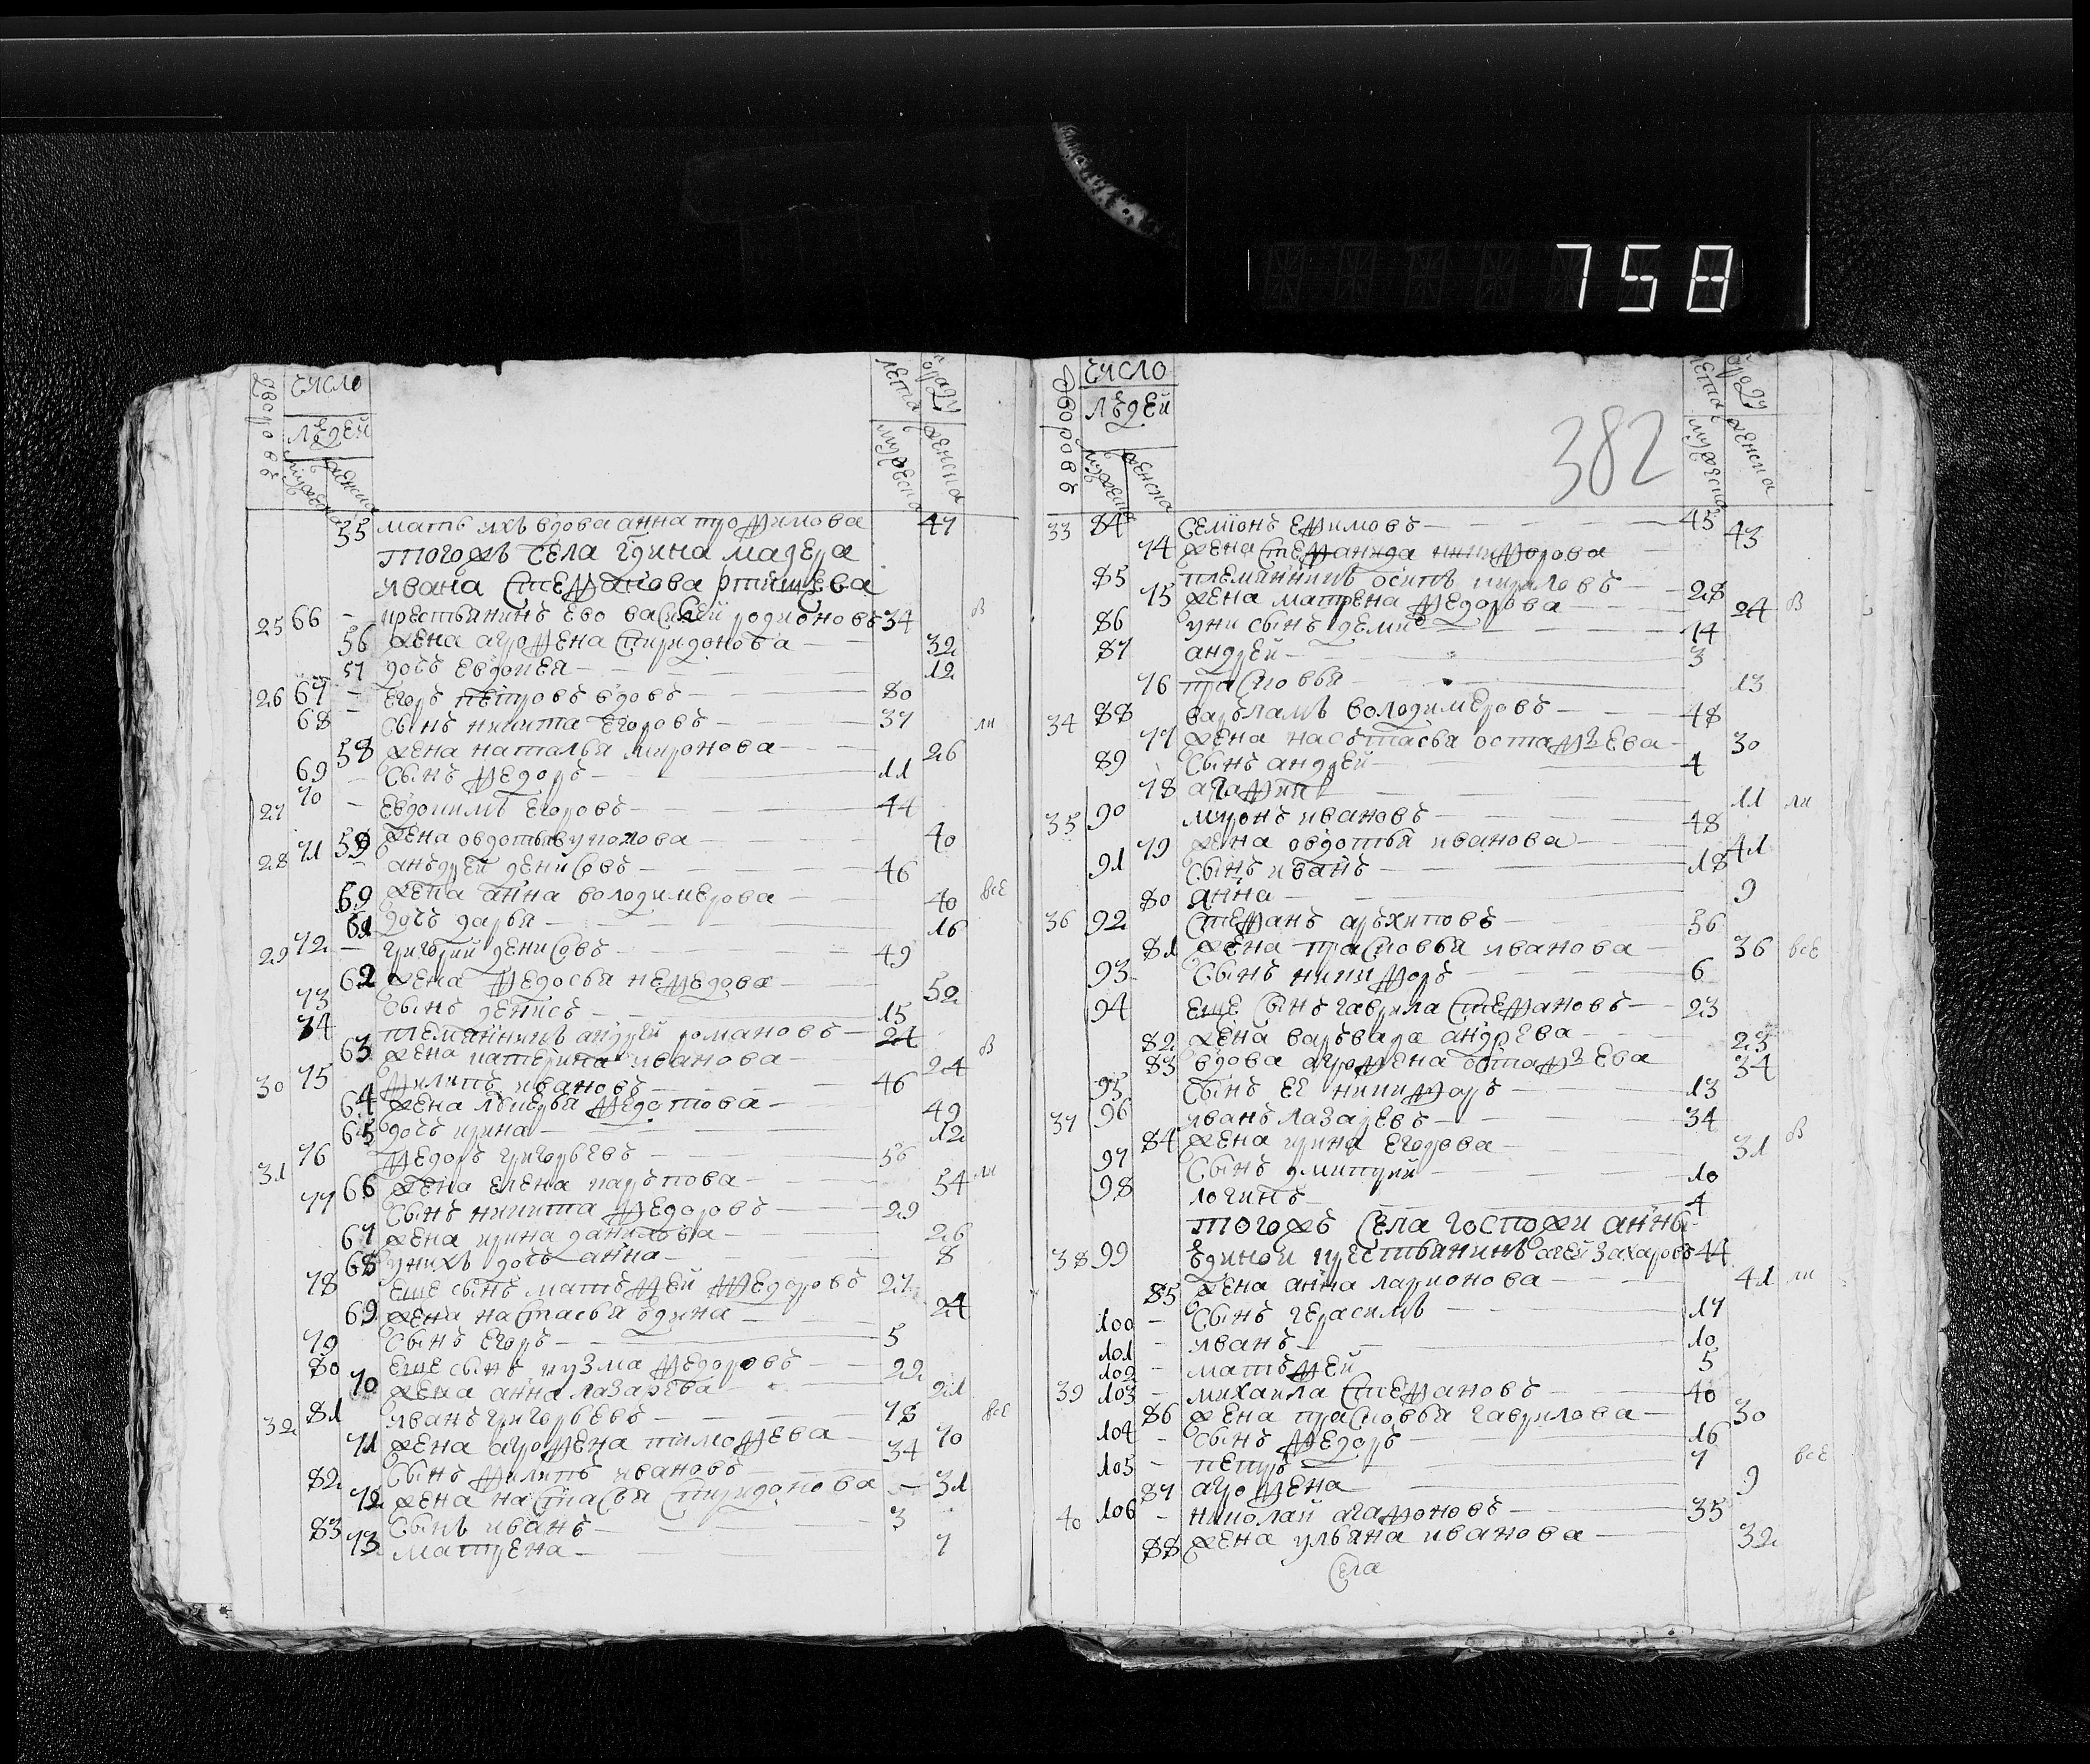 758
дворовъ число лѣта от роду
людей
мужеска женска мужеска женска
55 мать ихъ вдова анна трофимова 47
тогожъ села гдина маэера
ивана стефанова ртищева
25 66 – крестьянинъ ево василей родионовъ 34 в
56 жена агрофена спиридонова – 32
57 дочь евдокея – 12
26 67 – егоръ петровъ вдовъ – 80
68 – сынъ никита егоровъ – 37 ли
58 жена наталья миронова – 26
69 – сынъ федоръ – 11
27 70 – евдокимъ егоровъ – 44
59 жена овдотья 40
28 71 – анъдрей денисовъ – 46
жена анна володимерова – 40 все
61 дочь дарья – 16
29 72 – григорий денисовъ – 49
62 жена федосья нефедова – 52
73 сынъ денисъ – 15
74 племянникъ андрей романовъ – 24
63 жена катерина иванова – 24 в
30 75 филипъ ивановъ – 46
64 жена лукерья федотова – 49
65 дочь ирина – 12
31 76 федоръ григорьевъ – 56
66 жена елена карпова – 54 ли
77 сынъ никита федоровъ – 29
67 жена ирина данилова – 26
68 унихъ дочь анна – 8
78 еще сынъ матвфей федоровъ 27
69 жена настасья 24
79 сынъ егоръ – 5
80 еще сынъ кузма федоровъ – 22
70 жена анна лазарева – 21
32 81 иванъ григорьевъ – 78 все
71 жена агрофена тимофева – 70
82 сынъ филипъ ивановъ 34
72 жена настасья спиридонова – 31
83 сынъ иванъ – 3
73 матрена – 7
дворовъ число лѣта от роду
людей
мужеска женска мужеска женска
382
33 84 семионъ ефимовъ – 45
74 жена стефанида никифорова – 43
85 племянникъ осипъ кириловъ – 28
75 жена матрена федорова – 24 в
86 уни сынъ демидъ – 14
87 андрей – 3
76 прасковья 13
34 88 варъламъ володимеровъ – 48
77 жена насътасья остафъева – 30
89 сынъ андрей – 4
78 агафия 11 ли
35 90 миронъ ивановъ – 48
79 жена овдотья иванова – 41
91 сынъ иванъ – 18
80 анна – 9
36 92 стефанъ аръхиповъ – 36
81 жена прасковья иванова – 36 все
93 сынъ никифоръ – 6
94 еще сынъ гаврила стефановъ – 23
82 жена варъвара андрева – 23
83 вдова агрофена остафъева 34
95 сынъ ее никифоръ – 13
37 96 иванъ лазаревъ – 34
84 жена ирина егорова – 31 в
97 сынъ дмитрий – 10
98 логинъ – 4
тогожъ села госпожи анны
38 99 крестьянинъ захаровъ 44
85 жена анна ларионова – 41 ли
100 – сынъ герасимъ – 17
101 – иванъ – 10
102 – матъфей 5
39 103 – михаила стефановъ – 40
86 жена прасковья гаврилова – 30
104 – сынъ федоръ – 16
105 – петръ – 7 все
87 агрофена – 9
40 106 – николай агафоновъ – 35
88 жена ульяна иванова – 32
села